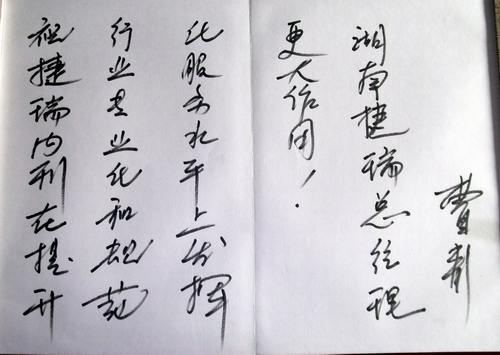 祝捷瑞内刊在提升
行业专业化和规范
化服务水平上发挥
更大作用！
湖南捷瑞总经理